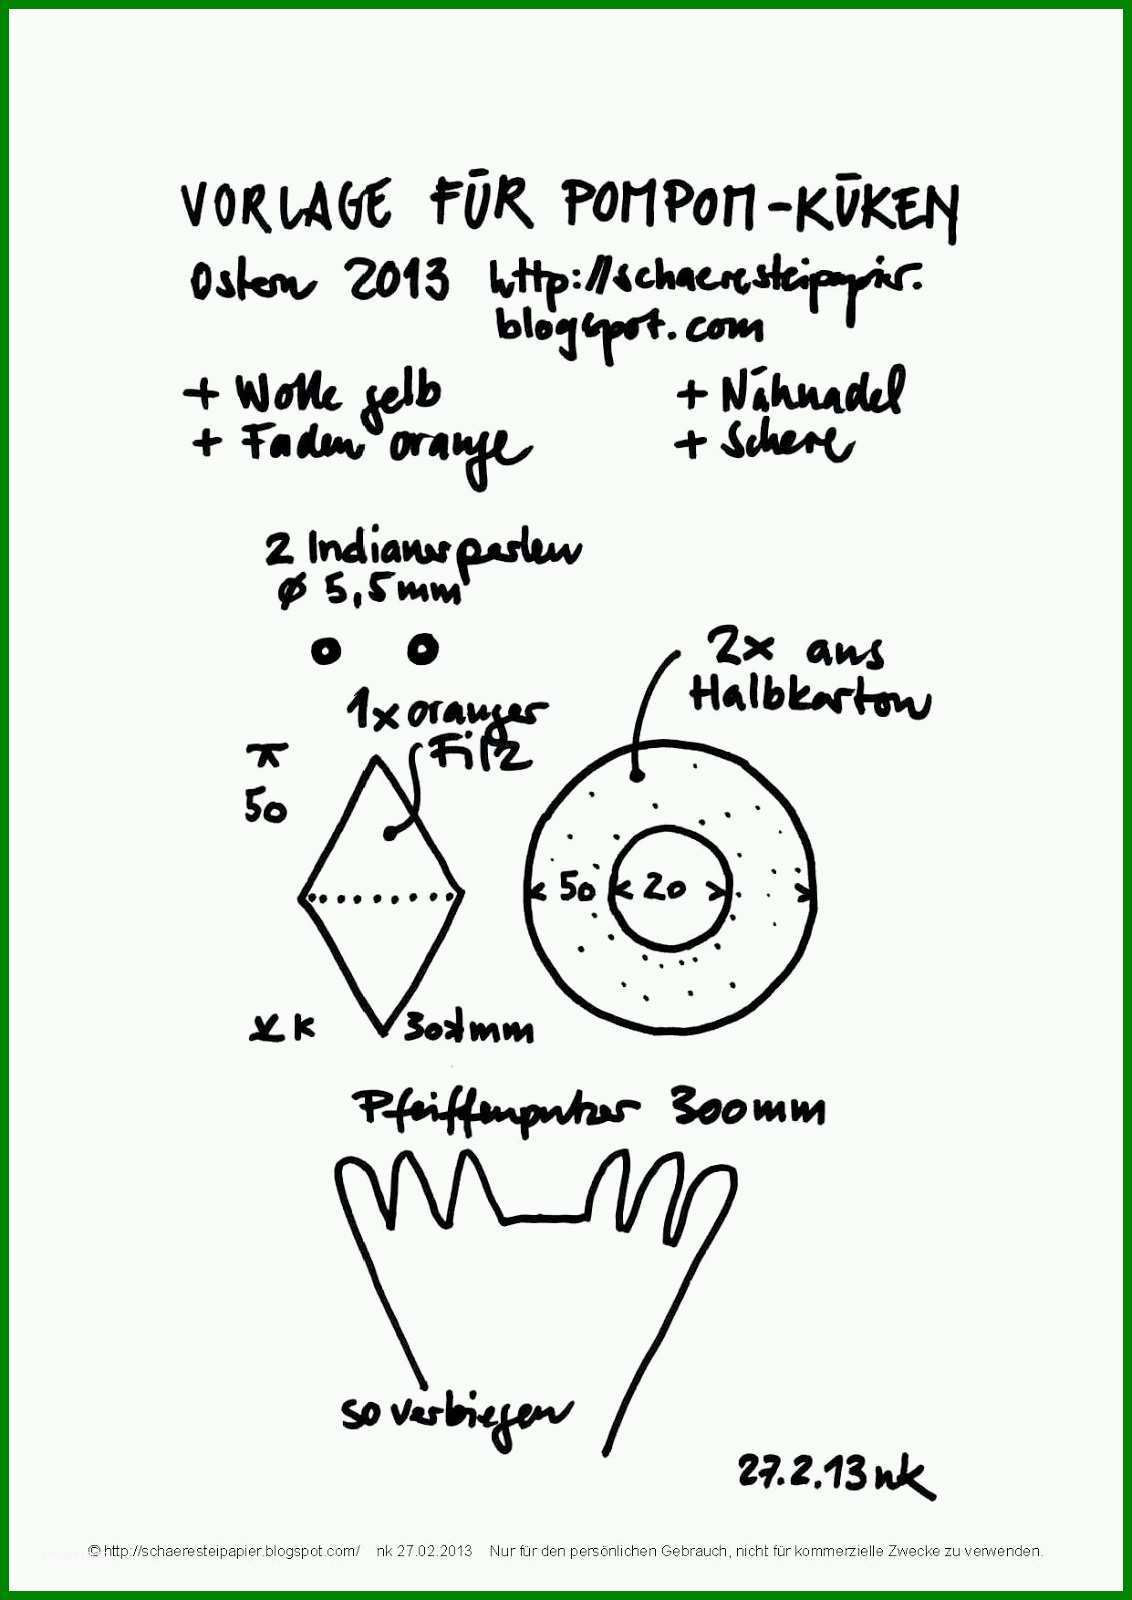 VORLAGE FÜR POMPOM-KÜKEN
Ostern 2013 http://schaeresteipapier.
blogspot.com
+ Wolle gelb
+ Faden orange
+ Nähnadel
+ Schere
2 Indianerperlen
Ø 5,5mm
2x aus
Halbkarton
1x oranger
Filz
50
50 20
30 mm
Pfeiffenputzer 300mm
so verbiegen
27.2.13 nk
© http://schaeresteipapier.blogspot.com/ nk 27.02.2013 Nur für den persönlichen Gebrauch, nicht für kommerzielle Zwecke zu verwenden.